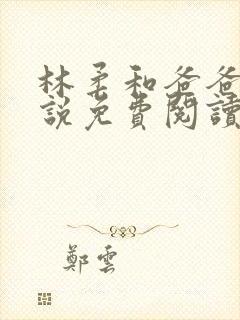 林柔和爸爸
說免費閱讀
鄭雲